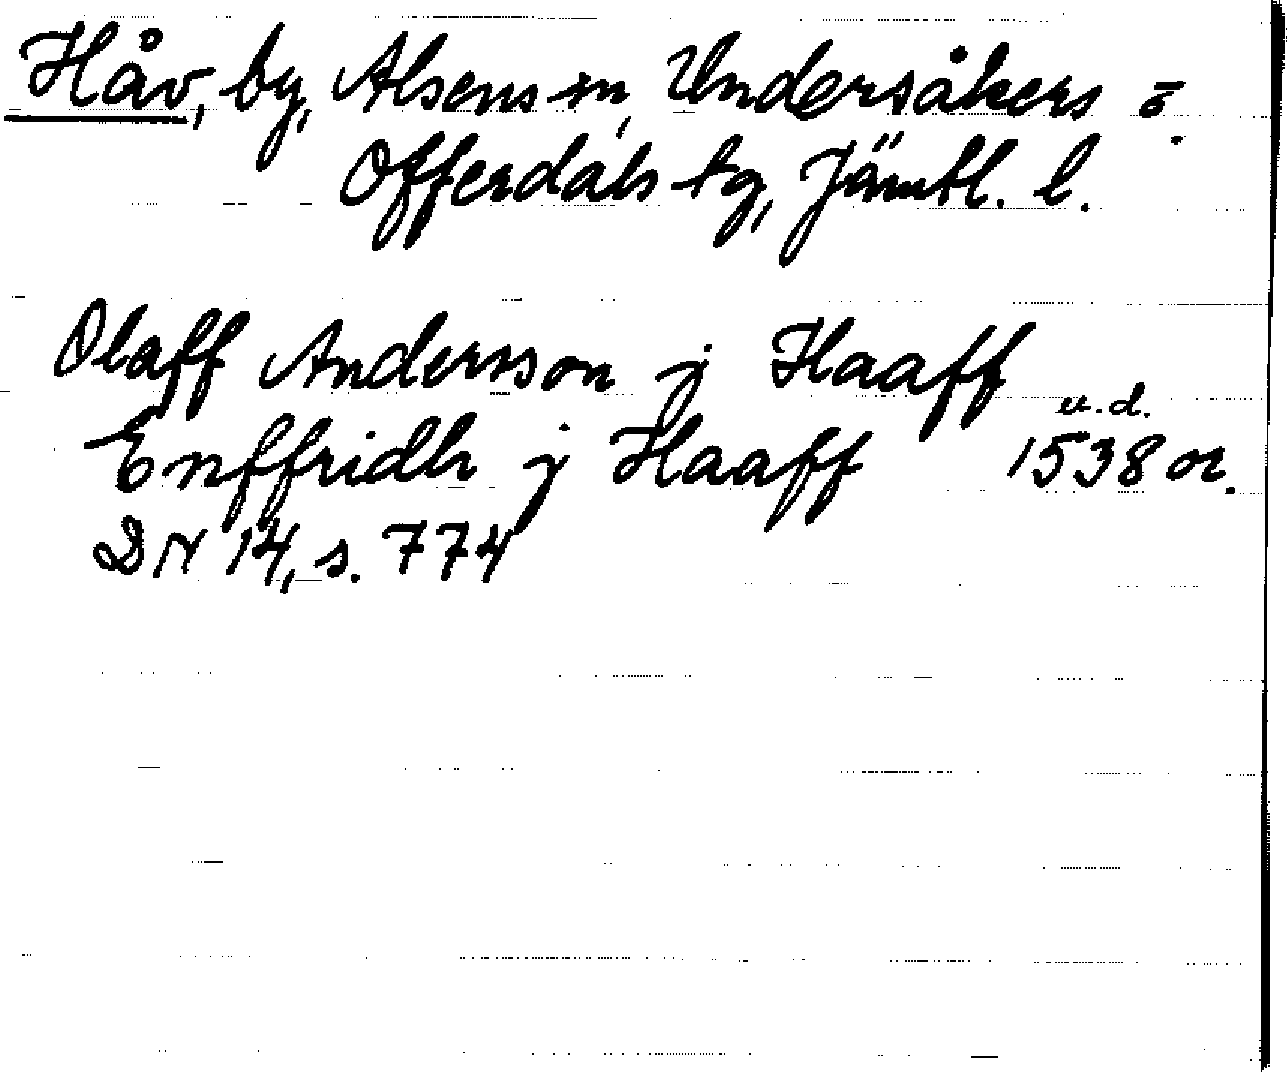 Håv, by, Alsens sn, Undersåkers o.
Offerdals tg, Jämtl. l.
Olaff Andersson j Haaff
u.d.
Enffridh j Haaff 1538 or.
DN 14, s. 774